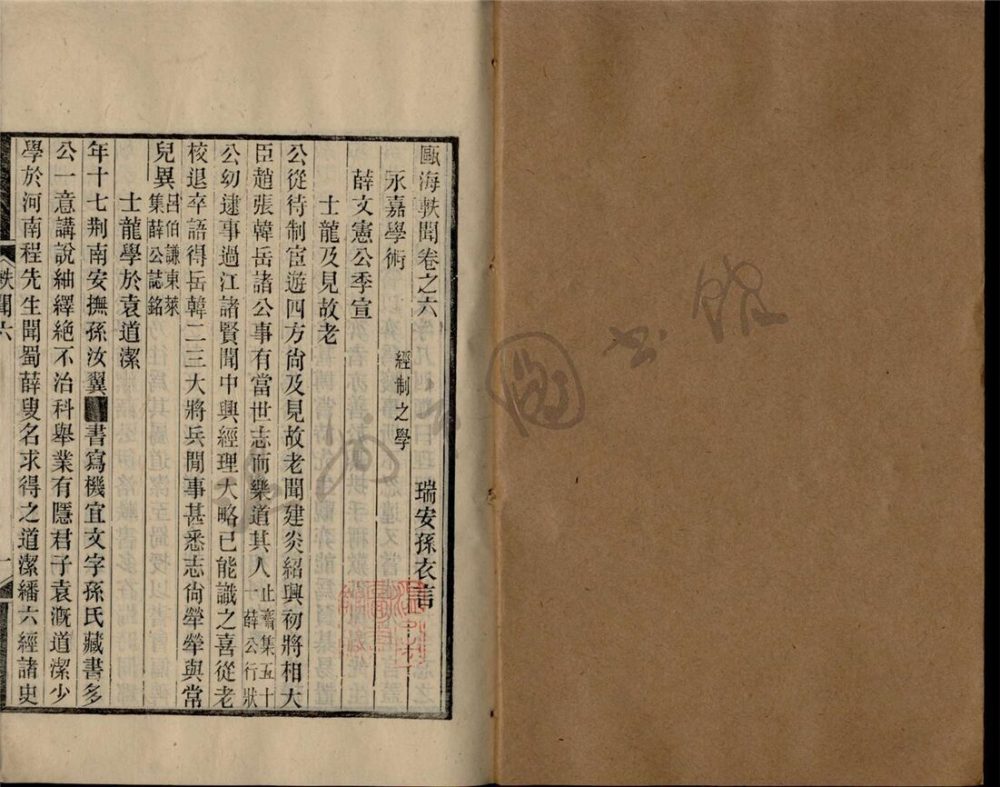 甌海軼聞卷之六 瑞安孫衣言
永嘉學術 經制之學
薛文憲公季宣
士龍及見故老
公從待制宦遊四方尙及見故老聞建炎紹興初將相大
臣趙張韓岳諸公事有當世志而樂道其人止齋集五十一薛公行狀
公幼逮事過江諸賢聞中興經理大略已能識之喜從老
校退卒語得岳韓二三大將兵閒事甚悉志尙犖犖與常
兒異呂伯謙東萊集薛公誌銘
士龍學於袁道潔
年十七荆南安撫孫汝翼書寫機宜文字孫氏藏書多
公一意講說紬繹絶不治科舉業有隱君子袁溉道潔少
學於河南程先生聞蜀薛叟名求得之道潔繙六經諸史
軼聞六
一
圖書館